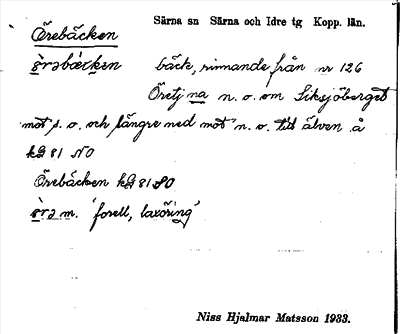 Särna sn Särna och Idre tg Kopp. län.
Örebäcken
bäck, rinnande från nr 126
Öretj na n. o. om Siksjöberget
mot s. o. och längre ned mot n. o. till älven å
kg 81 NO
Örebäcken kg 81 SO
m. 'forell, laxöring'
Niss Hjalmar Matsson 1933.